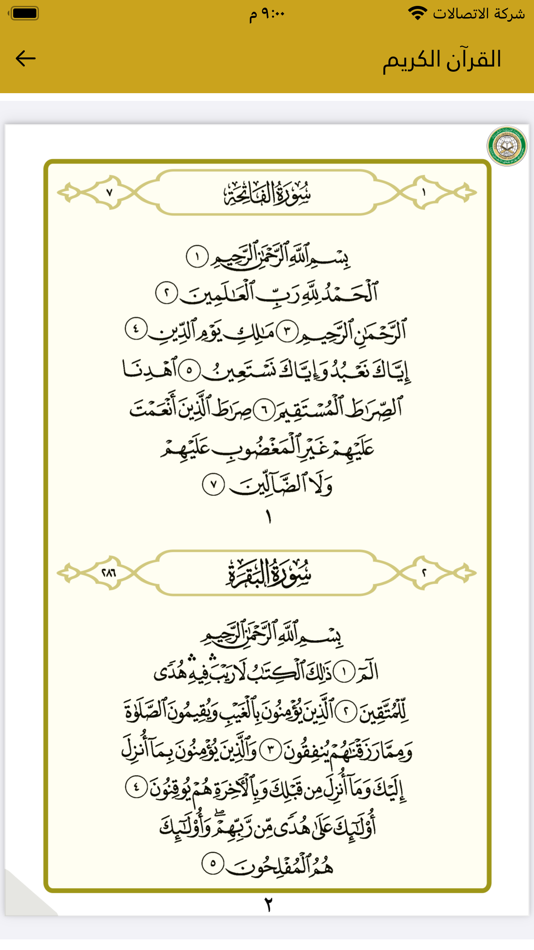 شركة الاتصالات ٩:٠٠ م
القرآن الكريم
١ سُورَةُ الفَاتِحَةِ ٧
بِسْمِ ٱللَّهِ ٱلرَّحْمَٰنِ ٱلرَّحِيمِ ١
ٱلْحَمْدُ لِلَّهِ رَبِّ ٱلْعَٰلَمِينَ ٢
ٱلرَّحْمَٰنِ ٱلرَّحِيمِ ٣ مَٰلِكِ يَوْمِ ٱلدِّينِ ٤
إِيَّاكَ نَعْبُدُ وَإِيَّاكَ نَسْتَعِينُ ٥ ٱهْدِنَا
ٱلصِّرَٰطَ ٱلْمُسْتَقِيمَ ٦ صِرَٰطَ ٱلَّذِينَ أَنْعَمْتَ
عَلَيْهِمْ غَيْرِ ٱلْمَغْضُوبِ عَلَيْهِمْ
وَلَا ٱلضَّآلِّينَ ٧
١
٢ سُورَةُ البَقَرَةِ ٢٨٦
بِسْمِ ٱللَّهِ ٱلرَّحْمَٰنِ ٱلرَّحِيمِ
الٓمٓ ١ ذَٰلِكَ ٱلْكِتَٰبُ لَا رَيْبَ ۛ فِيهِ ۛ هُدًى
لِّلْمُتَّقِينَ ٢ ٱلَّذِينَ يُؤْمِنُونَ بِٱلْغَيْبِ وَيُقِيمُونَ ٱلصَّلَوٰةَ
وَمِمَّا رَزَقْنَٰهُمْ يُنفِقُونَ ٣ وَٱلَّذِينَ يُؤْمِنُونَ بِمَآ أُنزِلَ
إِلَيْكَ وَمَآ أُنزِلَ مِن قَبْلِكَ وَبِٱلْءَاخِرَةِ هُمْ يُوقِنُونَ ٤
أُو۟لَٰٓئِكَ عَلَىٰ هُدًى مِّن رَّبِّهِمْ ۖ وَأُو۟لَٰٓئِكَ
هُمُ ٱلْمُفْلِحُونَ ٥
٢